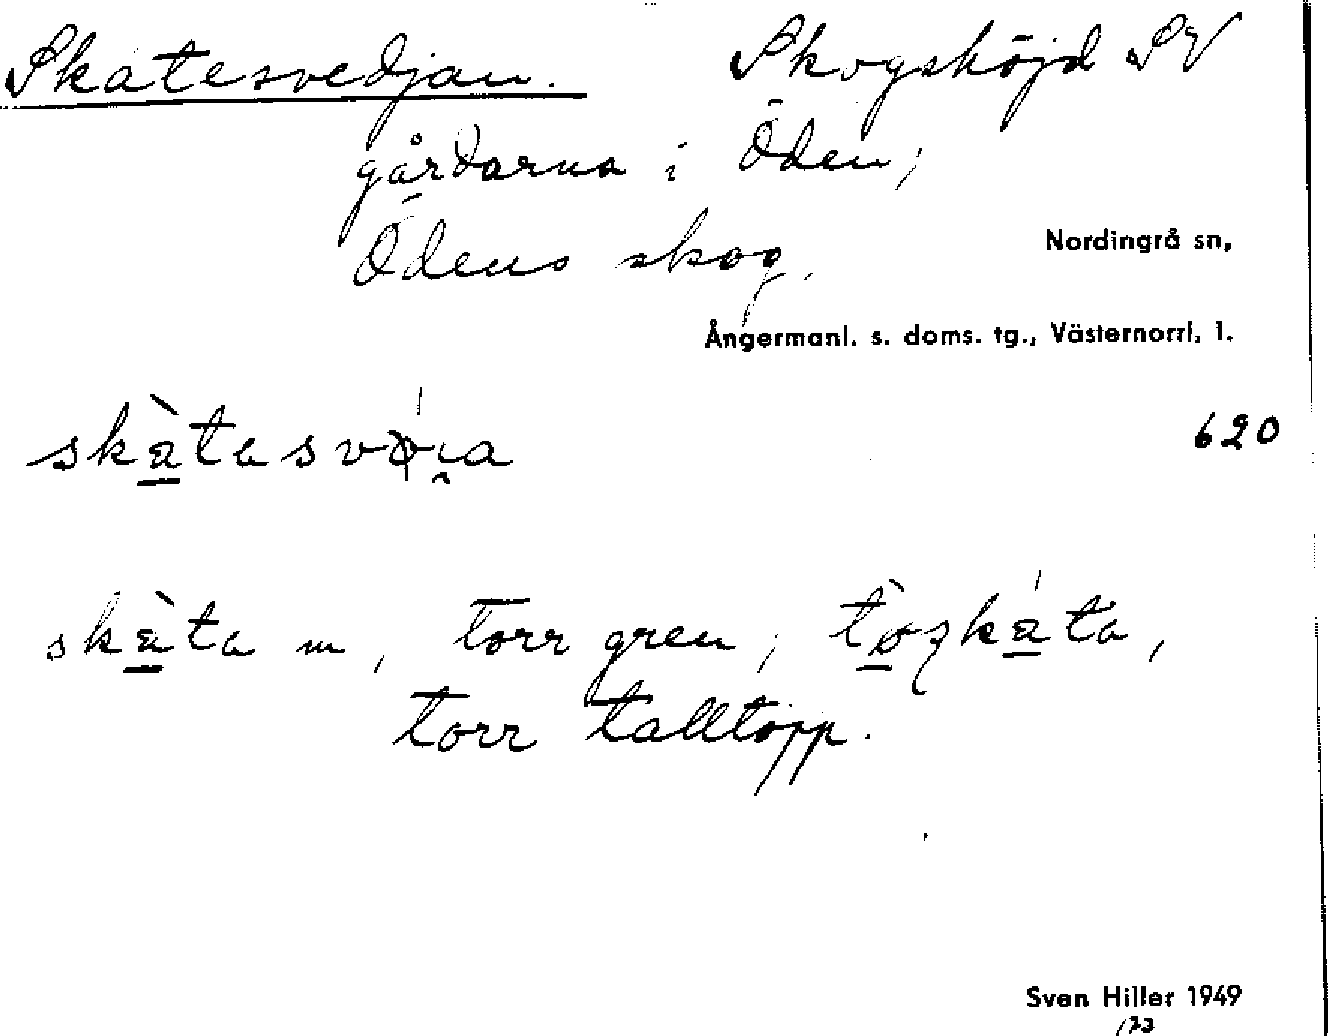 Skatesvedjan. Skogshöjd SV
gårdarna i Öden;
Ödens skog.
Nordingrå sn,
Ångermanl. s. doms. tg., Västernorrl. l.
620
skata m, torr gren;
torr talltopp.
Sven Hiller 1949